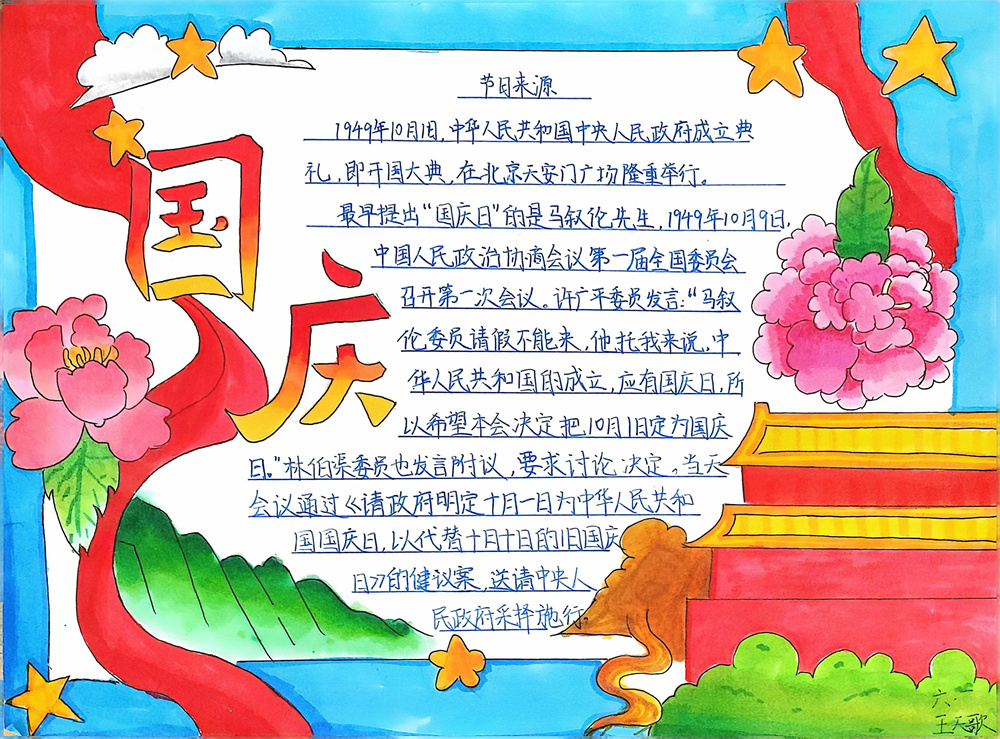 国庆
节日来源
1949年10月1日，中华人民共和国中央人民政府成立典
礼，即开国大典，在北京天安门广场隆重举行。
最早提出“国庆日”的是马叙伦先生，1949年10月9日，
中国人民政治协商会议第一届全国委员会
召开第一次会议。许广平委员发言：“马叙
伦委员请假不能来，他托我来说，中
华人民共和国的成立，应有国庆日，所
以希望本会决定把10月1日定为国庆
日。”林伯渠委员也发言附议，要求讨论决定。当天
会议通过《请政府明定十月一日为中华人民共和
国国庆日，以代替十月十日的旧国庆
日》的健议案，送请中央人
民政府采择施行。
六一
王天歌